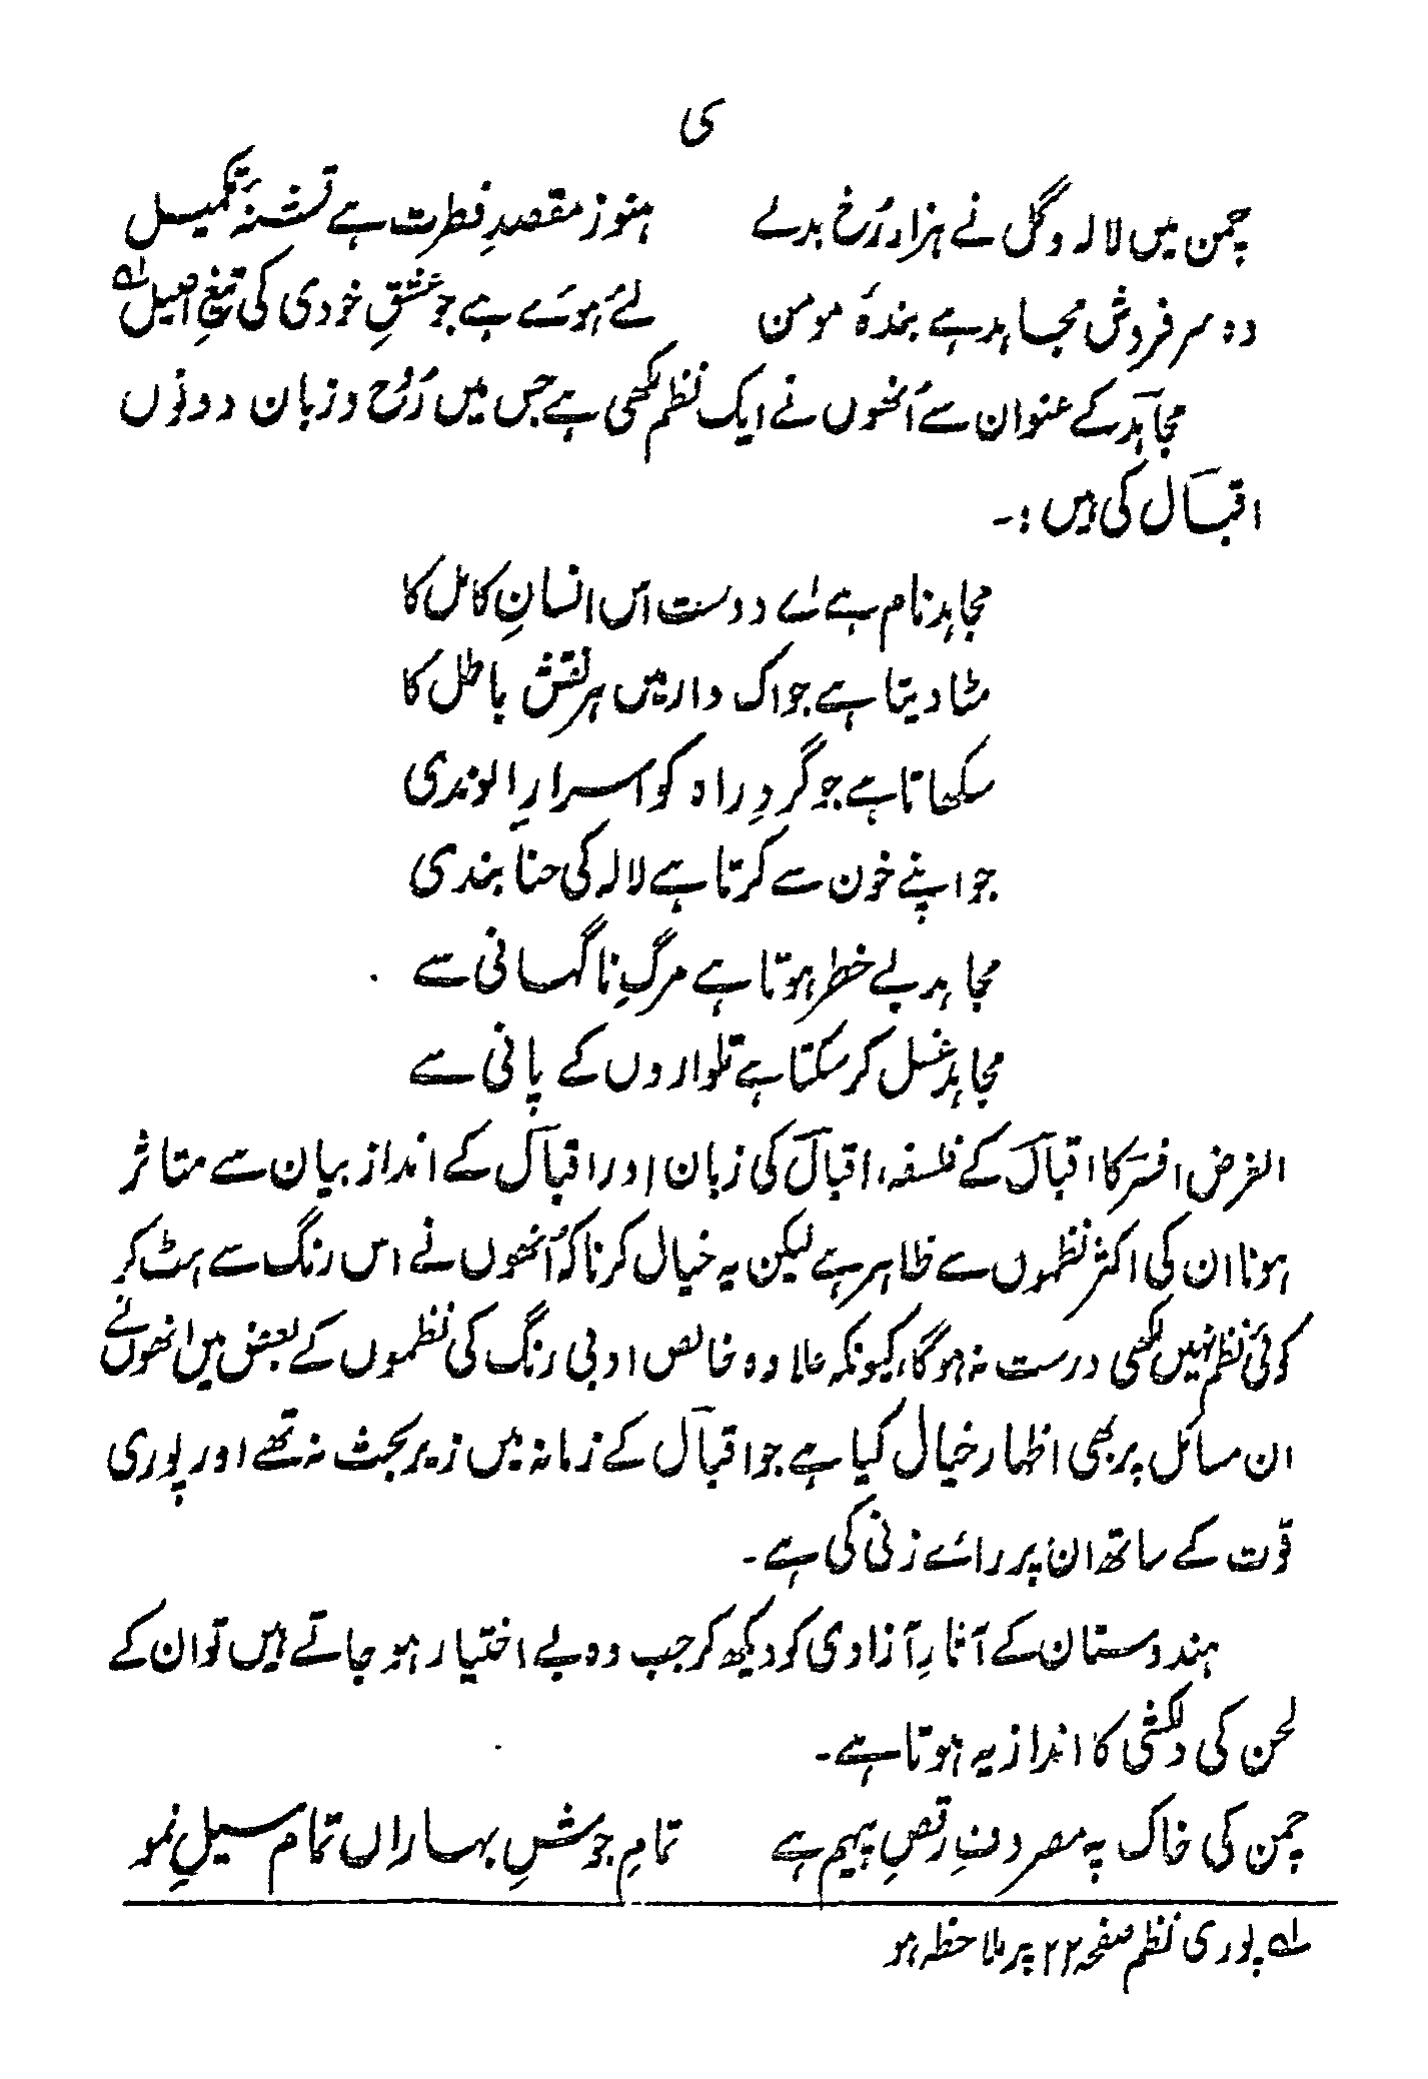 ی
چمن میں لالہ و گل نے ہزار رُخ بدلے ہنوز مقصدِ فطرت ہے تشنۂ تکمیل
وہ سرفروش مجاہد ہے بندۂ مومن لئے ہوئے ہے جو عشقِ خودی کی تیغِ اصیل ؎۱
مجاہد کے عنوان سے اُنھوں نے ایک نظم لکھی ہے جس میں رُوح و زبان دونوں
اقبال کی ہیں :۔
مجاہد نام ہے اے دوست اس انسانِ کامل کا
مٹا دیتا ہے جو اک وار میں ہر نقش باطل کا
سکھاتا ہے جو گردِ راہ کو اسرارِ الوندی
جو اپنے خون سے کرتا ہے لالہ کی حنا بندی
مجاہد بے خطر ہوتا ہے مرگِ ناگہانی سے
مجاہد غسل کر سکتا ہے تلواروں کے پانی سے
الغرض افسر کا اقبال کے فلسفہ، اقبال کی زبان اور اقبال کے انداز بیان سے متاثر
ہونا ان کی اکثر نظموں سے ظاہر ہے لیکن یہ خیال کرنا کہ اُنھوں نے اس رنگ سے ہٹ کر
کوئی نظم نہیں لکھی درست نہ ہوگا، کیونکہ علاوہ خالص ادبی رنگ کی نظموں کے بعض میں انھوں نے
ان مسائل پر بھی اظہار خیال کیا ہے جو اقبال کے زمانہ میں زیر بحث نہ تھے اور پوری
قوّت کے ساتھ ان پر رائے زنی کی ہے۔
ہندوستان کے آثارِ آزادی کو دیکھ کر جب وہ بے اختیار ہو جاتے ہیں تو ان کے
لحن کی دلکشی کا انداز یہ ہوتا ہے۔
چمن کی خاک پہ مصروفِ رقصِ پیہم ہے تمامِ جوششِ بہاراں تمام سیلِ نمو
؎۱ پوری نظم صفحہ ۲۲ پر ملاحظہ ہو